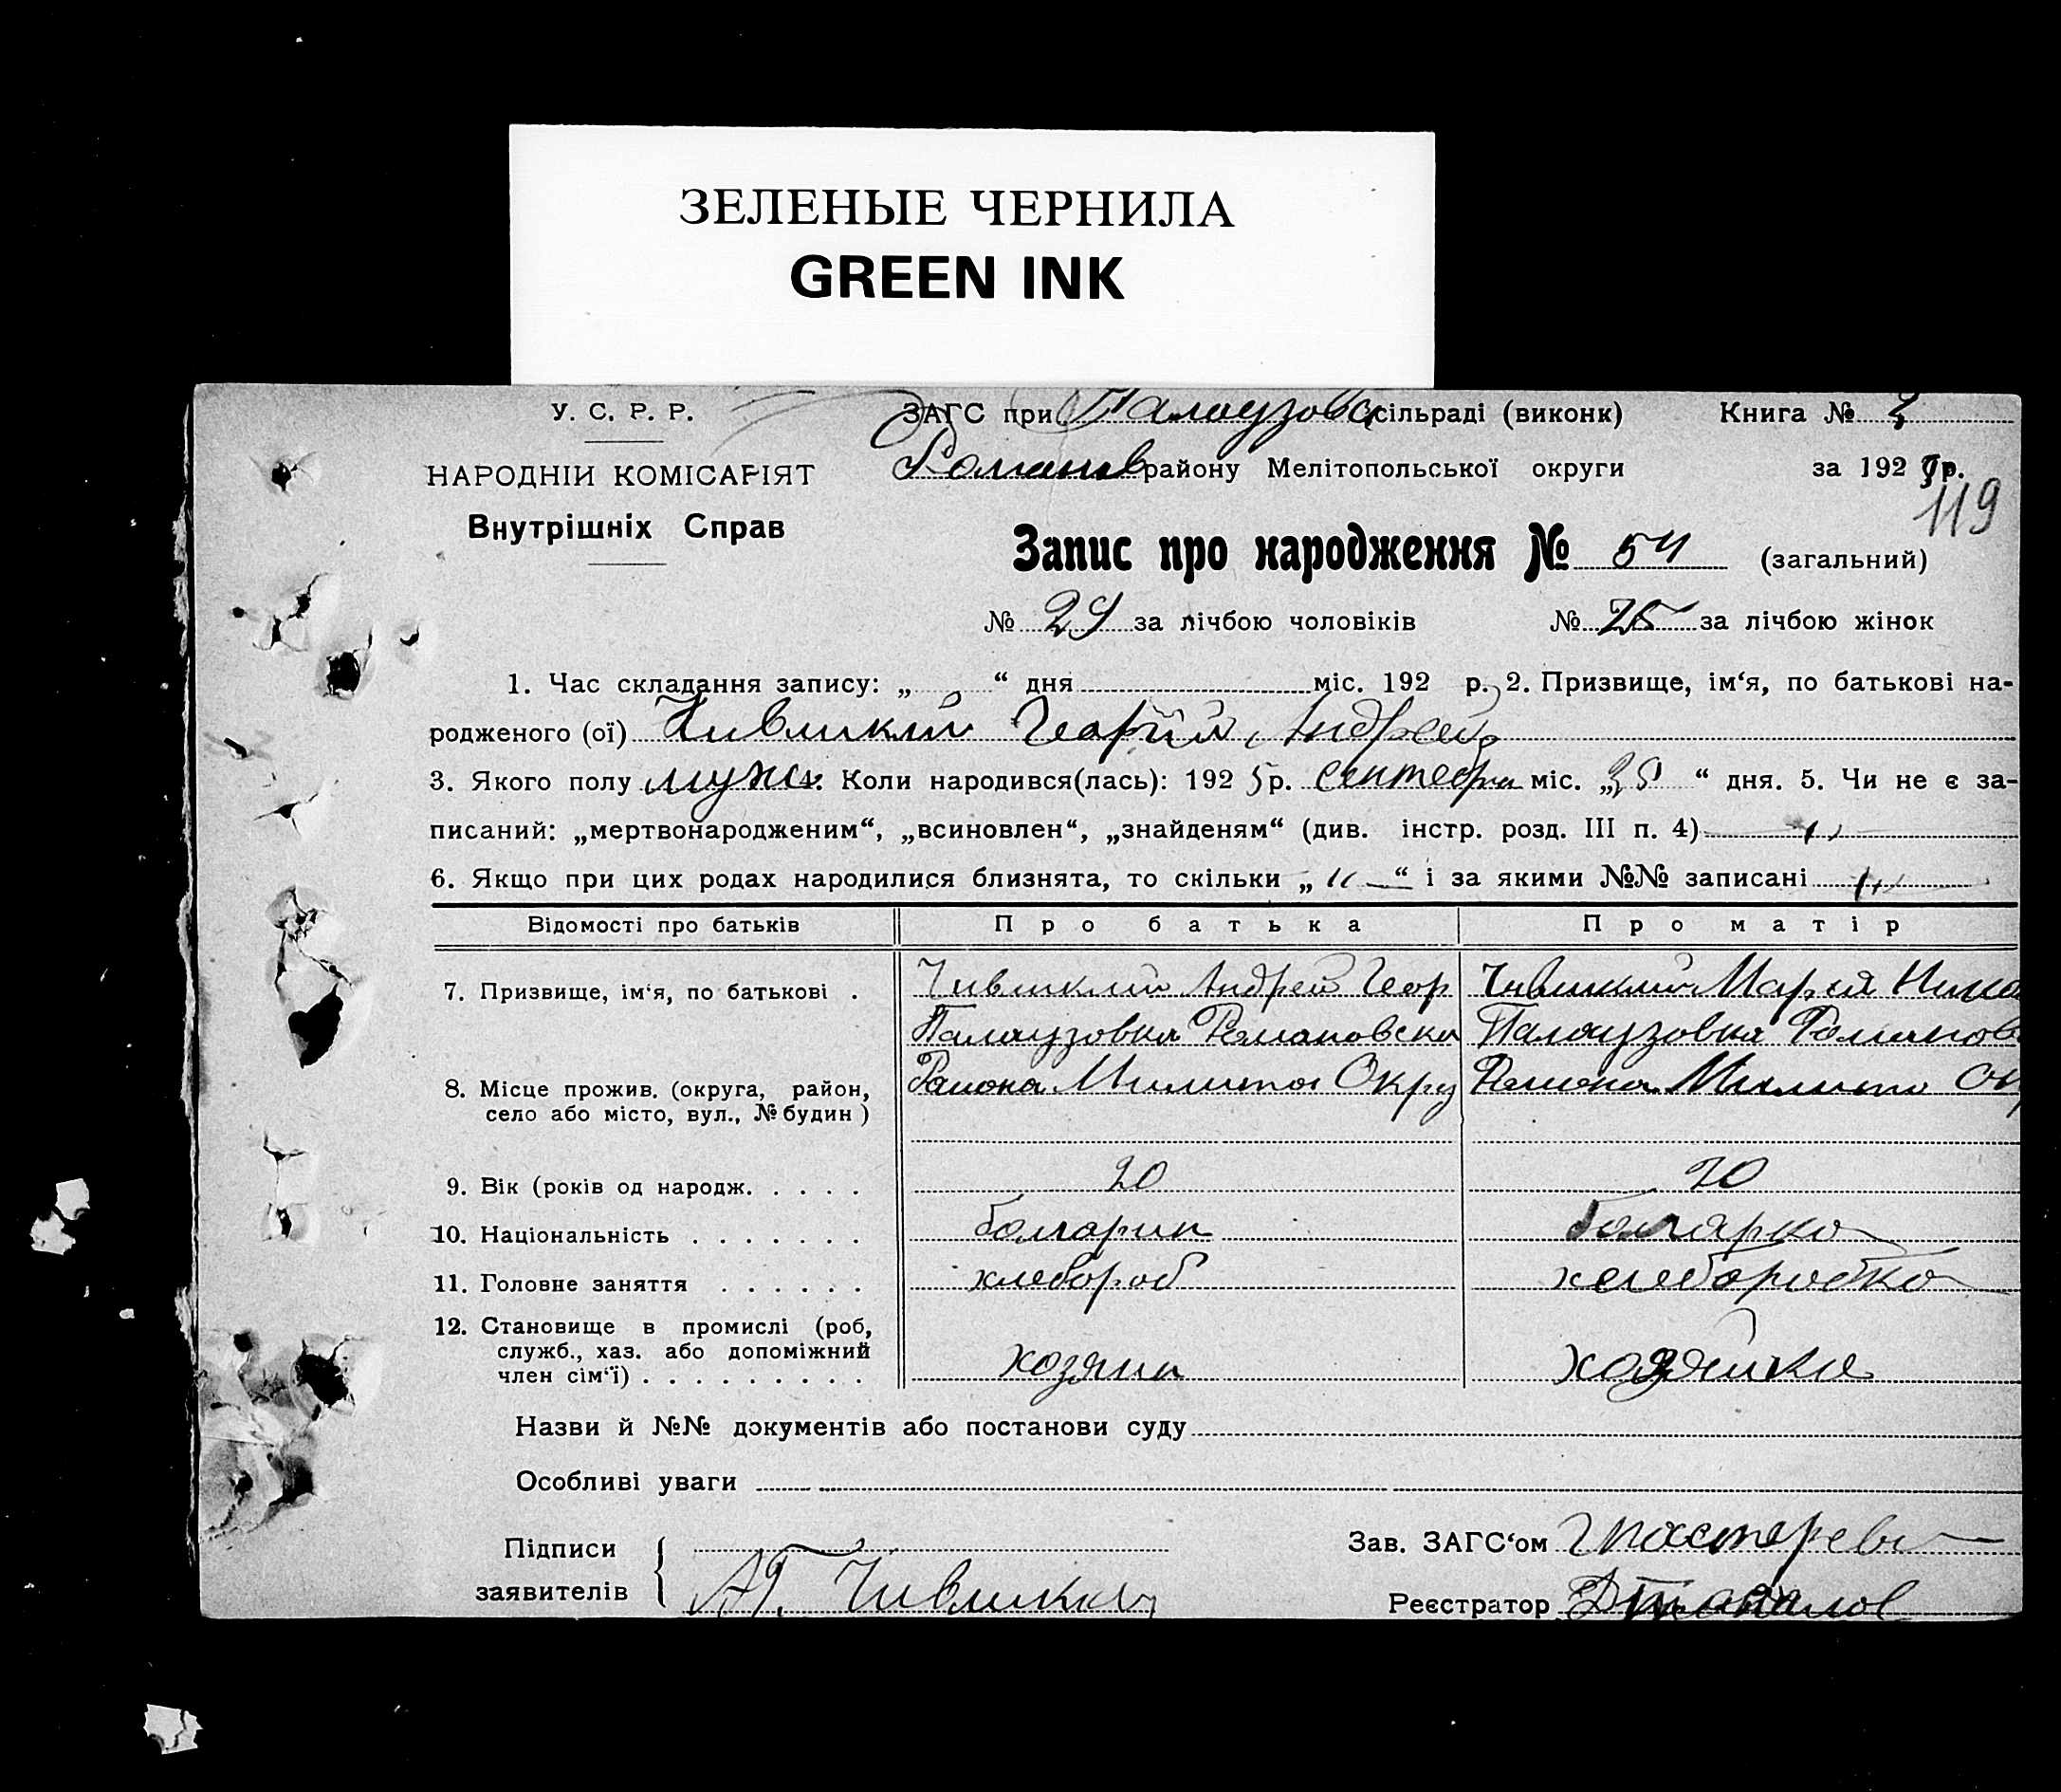 ЗЕЛЕНЫЕ ЧЕРНИЛА
GREEN INK
У. С. Р. Р.
ЗАГС при Палаузовс сільраді (виконк) Книга №
НАРОДНІЙ КОМІСАРІЯТ
Романов району Мелітопольської округи за 192 р.
119
Внутрішніх Справ
Запис про народження № 54 (загальний)
№ 29 за лічбою чоловіків № 25 за лічбою жінок
1. Час складання запису: „ “ дня міс. 192 р. 2. Призвище, ім‘я, по батькові на-
родженого (ої) Чивликлий Георгий Андрей
3. Якого полу муж. 4. Коли народився(лась): 1925 р. сентебря міс. „ “ дня. 5. Чи не є за-
писаний: „мертвонародженим“, „всиновлен“, „знайденям“ (див. інстр. розд. III п. 4)
6. Якщо при цих родах народилися близнята, то скільки „ “ і за якими №№ записані
Відомості про батьків Про батька Про матір
7. Призвище, ім‘я, по батькові . Чивликлий Андрей Геор Чивликлий Мария Нико
Палаузовка Романовски Палаузовка Романов
8. Місце прожив. (округа, район, Района Милитоп Окру Района Милито Ок
село або місто, вул., № будин )
9. Вік (років од народж. . . . . 20 20
10. Національність . . . . . . . болгарин болгарка
11. Головне заняття . . . . . . хлебороб хлеборобка
12. Становище в промислі (роб,
служб., хаз. або допоміжний
член сім‘ї) . . . . . . . . . хозяин хозяйка
Назви й №№ документів або постанови суду
Особливі уваги
Підписи Зав. ЗАГС‘ом
заявителів АГ. Чивликлий Реєстратор